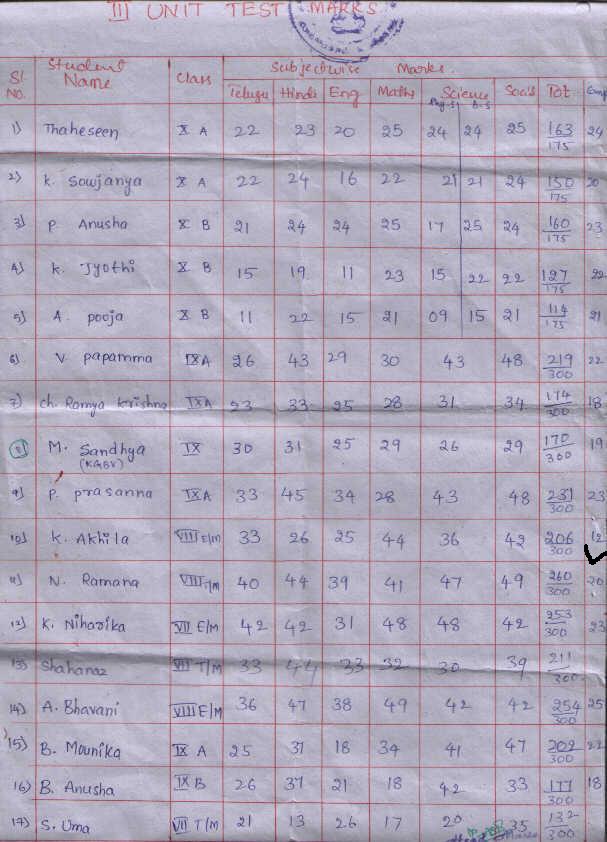 III UNIT TEST MARKS
Sl. No. Student Name Class Subjectwise Marks.
Telugu Hindi Eng Maths Science Soc.s Tot Comp
Phy.S B.S
1) Thaheseen X A 22 23 20 25 24 24 25 163/175 24
2) K. Sowjanya X A 22 24 16 22 21 21 24 150/175 20
3) P. Anusha X B 21 24 24 25 17 25 24 160/175 23
4) K. Jyothi X B 15 19 11 23 15 22 22 127/175 22
5) A. pooja X B 11 22 15 21 09 15 21 114/175 21
6) V papamma IX A 26 43 29 30 43 48 219/300 22
7) ch. Ramya Krishna IX A 23 33 25 28 31 34 174/300 18
8) M. Sandhya (KGBV) IX 30 31 25 29 26 29 170/300 19
9) P. prasanna IX A 33 45 34 28 43 48 231/300 23
10) K. Akhila VIII E/M 33 26 25 44 36 42 206/300 12
11) N. Ramana VIII T/M 40 44 39 41 47 49 260/300 20
12) K. Niharika VII E/M 42 42 31 48 48 42 253/300 23
13) Shahanaz VII T/M 33 44 33 32 30 39 211/300
14) A. Bhavani VIII E/M 36 47 38 49 42 42 254/300 25
15) B. Mounika IX A 25 37 18 34 41 47 202/300 22
16) B. Anusha IX B 26 37 21 18 42 33 177/300 18
17) S. Uma VII T/M 21 13 26 17 20 35 132/300